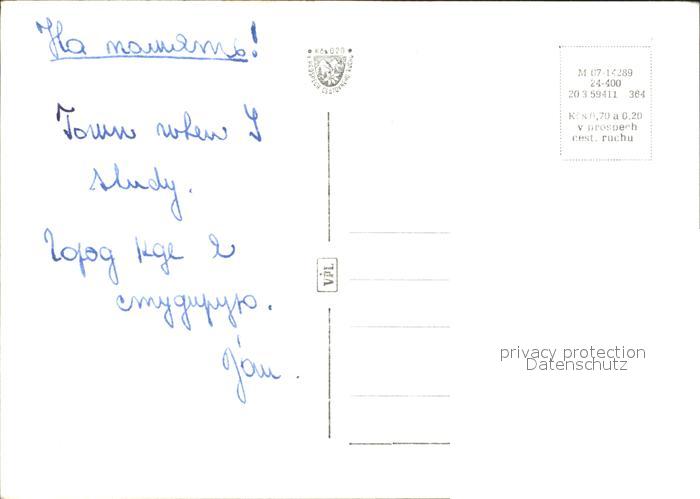 На память!
Town when I
study.
Город где я
студирую.
Ján.
Kčs 0.20
V PROSPĚCH CESTOVNÍHO RUCHU
VPL
M 07-14289
24-400
20 3 59411 364
Kčs 0,70 a 0,20
v prospech
cest. ruchu
privacy protection
Datenschutz